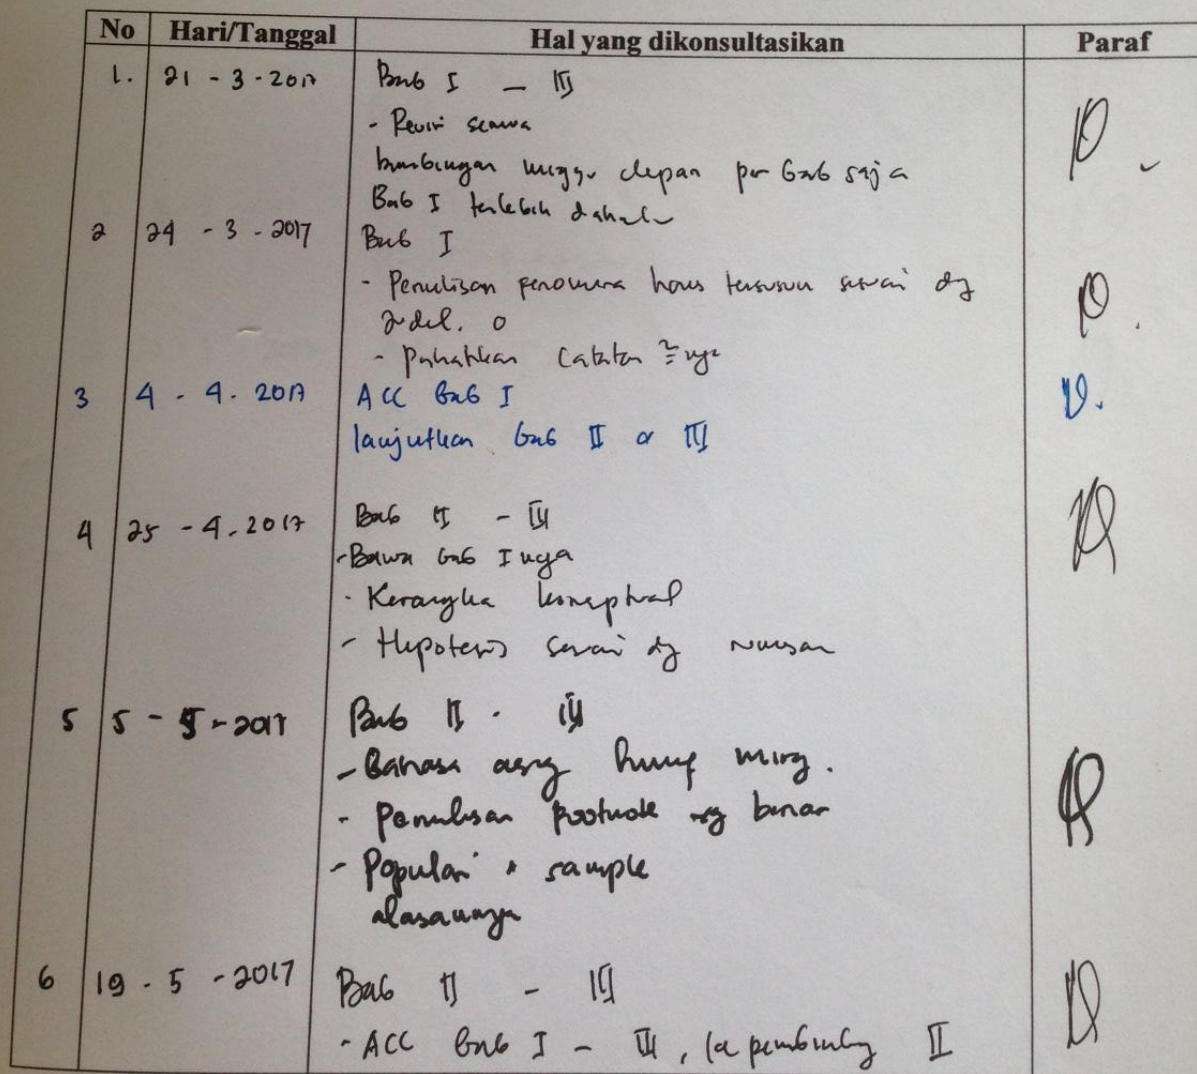 No Hari/Tanggal Hal yang dikonsultasikan Paraf
1. 21 - 3 - 2017 Bab I - III
- Revisi semua
bimbingan minggu depan per bab saja
Bab I terlebih dahulu
2 24 - 3 - 2017 Bab I
- Penulisan fenomena harus tersusun sesuai dg
judul.
- Perhatikan catatan
3 4 - 4 - 2017 ACC bab I
lanjutkan bab II & III
4 25 - 4 - 2017 Bab II - III
- Bawa bab I nya
- Kerangka konseptual
- Hipotesis sesuai dg rumusan
5 5 - 5 - 2017 Bab II - III
- Bahasa asing huruf miring.
- Penulisan footnote yg benar
- Populasi & sample
alasannya
6 19 - 5 - 2017 Bab II - III
- ACC bab I - III, ke pembimbing II